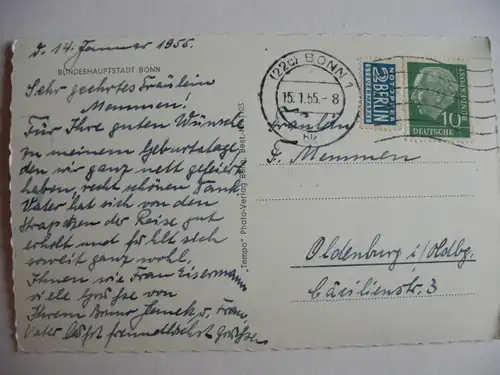 d. 14. Januar 1955.
BUNDESHAUPTSTADT BONN
Sehr geehrtes Fräulein
Memmen!
Für Ihre guten Wünsche
zu meinem Geburtstage,
den wir ganz nett gefeiert
haben, recht schönen Dank.
Vater hat sich von den
Strapatzen der Reise gut
erholt und fühlt sich
soweit ganz wohl.
Ihnen wie Frau Eisermann
viele Grüsse von
Ihrem Bruno u. Frau.
Vater läßt freundlichst Grüssen
"Tempo" Photo-Verlag Bonn, Best.-Nr.
(22c) BONN 1
15.1.55.-8
NOTOPFER
2 BERLIN
STEUERMARKE
DEUTSCHE
BUNDESPOST
10
Fräulein
F. Memmen
Oldenburg i/Oldbg.
Cäcilienstr. 3